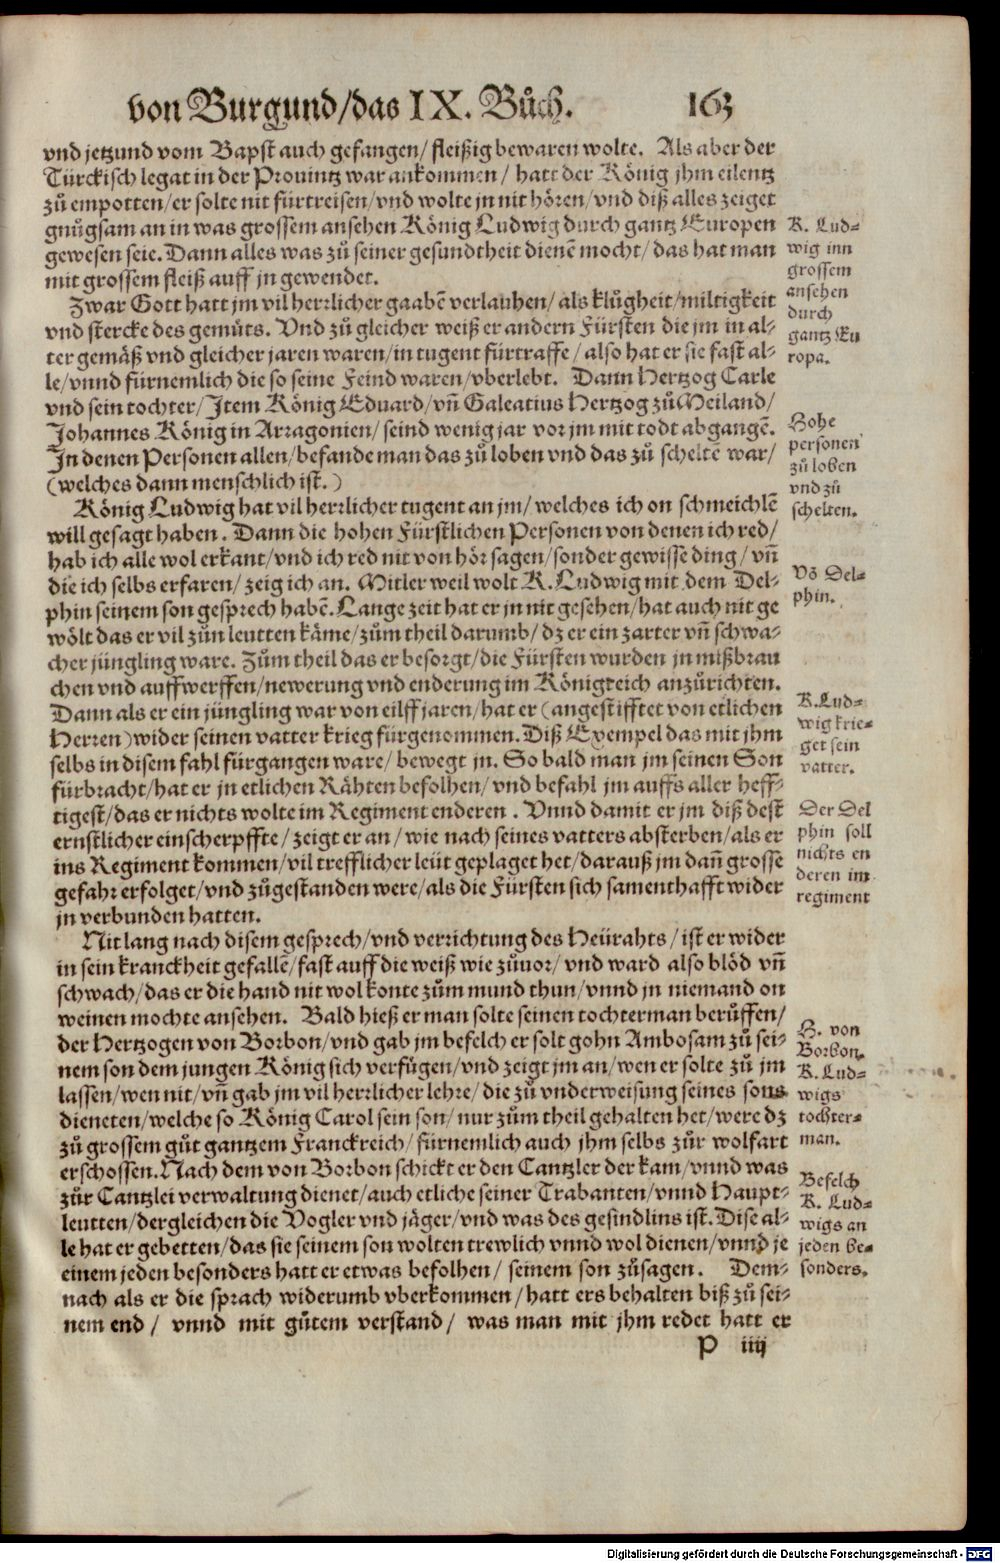 von Burgund/das IX. Bůch. 163
vnd jetzund vom Bapst auch gefangen/ fleißig bewaren wolte. Als aber der
Türckisch legat in der Prouintz war ankommen/ hatt der König jhm eilentz
zů empotten/er solte nit fürtreisen/vnd wolte jn nit hören/vnd diß alles zeiget
gnůgsam an in was grossem ansehen König Ludwig durch gantz Europen
gewesen seie. Dann alles was zů seiner gesundtheit dienẽ mocht/ das hat man
mit grossem fleiß auff jn gewendet.
K. Lud-
wig inn
grossem
ansehen
durch
gantz Eu
ropa.
Zwar Gott hatt jm vil herrlicher gaabẽ verlauhen/ als klůgheit/miltigkeit
vnd stercke des gemüts. Vnd zů gleicher weiß er andern Fürsten die jm in al-
ter gemäß vnd gleicher jaren waren/in tugent fürtraffe/ also hat er sie fast al-
le/vnnd fürnemlich die so seine Feind waren/vberlebt. Dann Hertzog Carle
vnd sein tochter/Item König Eduard/vñ Galeatius Hertzog zů Meiland/
Johannes König in Arragonien/ seind wenig jar vor jm mit todt abgangẽ.
In denen Personen allen/befande man das zů loben vnd das zů scheltẽ war/
(welches dann menschlich ist.)
Hohe
personen
zů loben
vnd zů
schelten.
König Ludwig hat vil herrlicher tugent an jm/ welches ich on schmeichlẽ
will gesagt haben. Dann die hohen Fürstlichen Personen von denen ich red/
hab ich alle wol erkant/vnd ich red nit von hör sagen/sonder gewisse ding/ vñ
die ich selbs erfaren/ zeig ich an. Mitler weil wolt K. Ludwig mit dem Del-
phin seinem son gesprech habẽ. Lange zeit hat er jn nit gesehen/hat auch nit ge
wölt das er vil zůn leutten käme/zům theil darumb/ dz er ein zarter vñ schwa-
cher jüngling ware. Zům theil das er besorgt/die Fürsten wurden jn mißbrau
chen vnd auffwerffen/newerung vnd enderung im Königreich anzůrichten.
Dann als er ein jüngling war von eilff jaren/hat er (angestifftet von etlichen
Herren) wider seinen vatter krieg fürgenommen. Diß Exempel das mit jhm
selbs in disem fahl fürgangen ware/ bewegt jn. So bald man jm seinen Son
fürbracht/hat er jn etlichen Rähten befolhen/ vnd befahl jm auffs aller heff-
tigest/das er nichts wolte im Regiment enderen. Vnnd damit er jm diß dest
ernstlicher einscherpffte/ zeigt er an/ wie nach seines vatters absterben/als er
ins Regiment kommen/vil trefflicher leüt geplaget het/darauß jm dañ grosse
gefahr erfolget/vnd zůgestanden were/als die Fürsten sich samenthafft wider
jn verbunden hatten.
Võ Del-
phin.
K. Lud-
wig krie-
get sein
vatter.
Der Del
phin soll
nichts en
deren im
regiment
Nit lang nach disem gesprech/vnd verrichtung des Heürahts/ ist er wider
in sein kranckheit gefallẽ/fast auff die weiß wie zůuor/ vnd ward also blöd vñ
schwach/das er die hand nit wol konte zům mund thun/vnnd jn niemand on
weinen mochte ansehen. Bald hieß er man solte seinen tochterman berůffen/
der Hertzogen von Borbon/vnd gab jm befelch er solt gohn Ambosam zů sei-
nem son dem jungen König sich verfügen/vnd zeigt jm an/wen er solte zů jm
lassen/wen nit/vñ gab jm vil herrlicher lehre/ die zů vnderweisung seines sons
dieneten/welche so König Carol sein son/ nur zům theil gehalten het/were dz
zů grossem gůt gantzem Franckreich/ fürnemlich auch jhm selbs zůr wolfart
erschossen. Nach dem von Borbon schickt er den Cantzler der kam/vnnd was
zůr Cantzlei verwaltung dienet/auch etliche seiner Trabanten/vnnd Haupt-
leutten/dergleichen die Vogler vnd jäger/vnd was des gesindlins ist. Dise al-
le hat er gebetten/das sie seinem son wolten trewlich vnnd wol dienen/vnnd je
einem jeden besonders hatt er etwas befolhen/ seinem son zůsagen. Dem-
nach als er die sprach widerumb vberkommen/ hatt ers behalten biß zů sei-
nem end/ vnnd mit gůtem verstand/ was man mit jhm redet hatt er
H. von
Borbon.
K. Lud-
wigs
tochter-
man.
Befelch
K. Lud-
wigs an
jeden be-
sonders.
P iiij
Digitalisierung gefördert durch die Deutsche Forschungsgemeinschaft - DFG